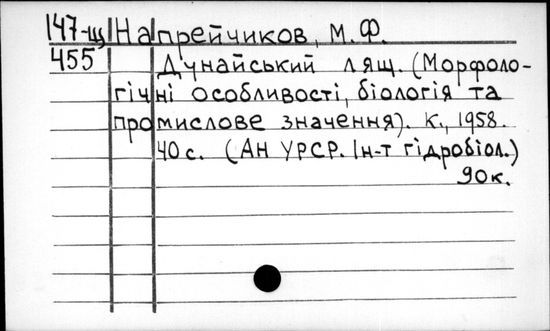 147-щ Напрейчиков, М.Ф.
455 Дунайський лящ. (Морфоло-
гічні особливості, біологія та
промислове значення). К., 1958.
40 с. (АН УРСР. Ін-т гідробіол.)
90 к.